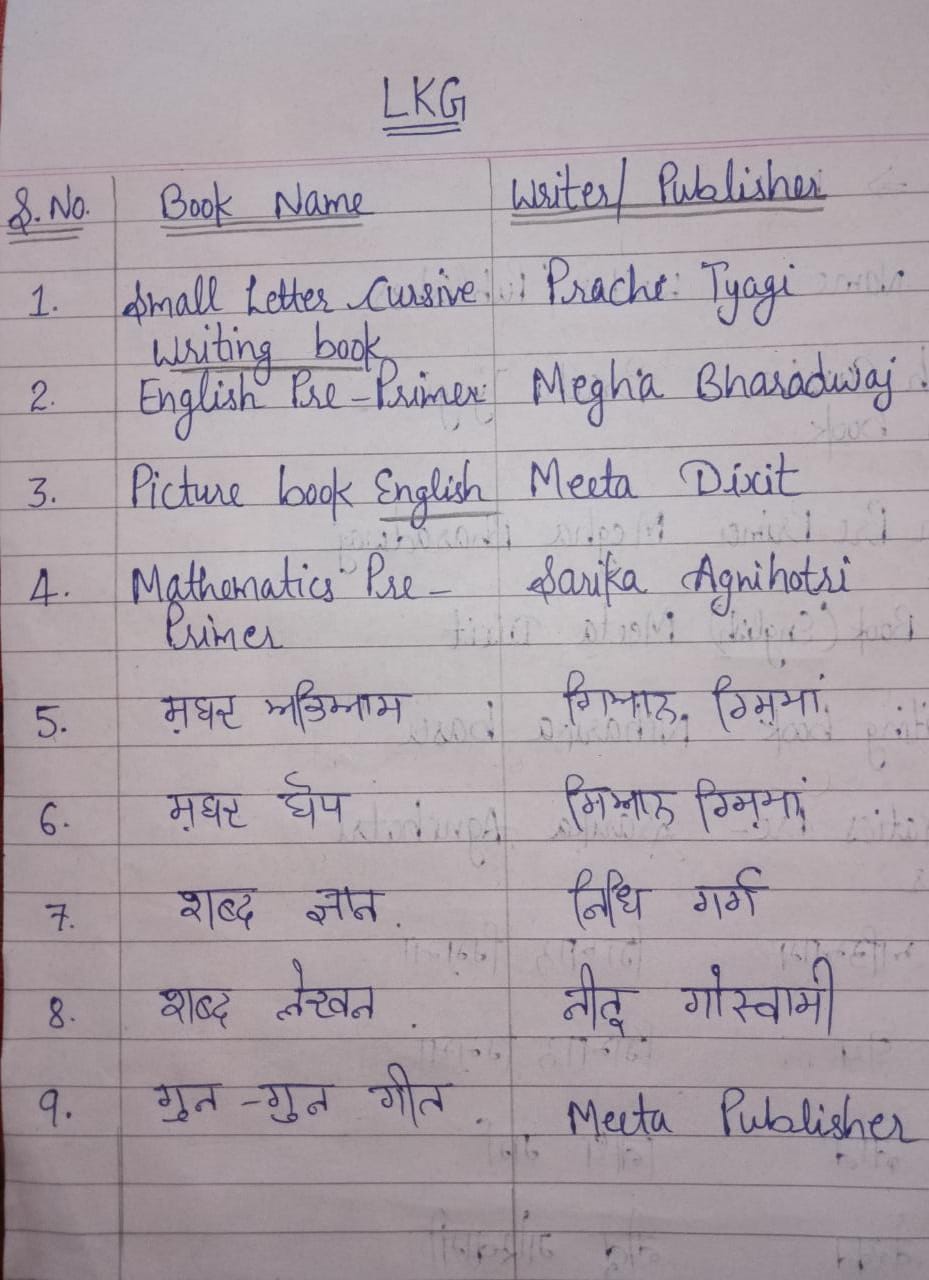 LKG
S. No. Book Name Writer/ Publisher
1. Small Letter Cursive Prachi Tyagi
Writing book
2. English Pre-Primer Megha Bharadwaj
3. Picture book English Meeta Dixit
4. Mathematics Pre- Sarika Agnihotri
Primer
5. ਸ਼ਬਦ ਅਭਿਆਸ
6. ਸ਼ਬਦ ਬੋਧ
7. शब्द ज्ञान. निधि गर्ग
8. शब्द लेखन. नीतू गोस्वामी
9. गुन-गुन गीत. Meeta Publisher